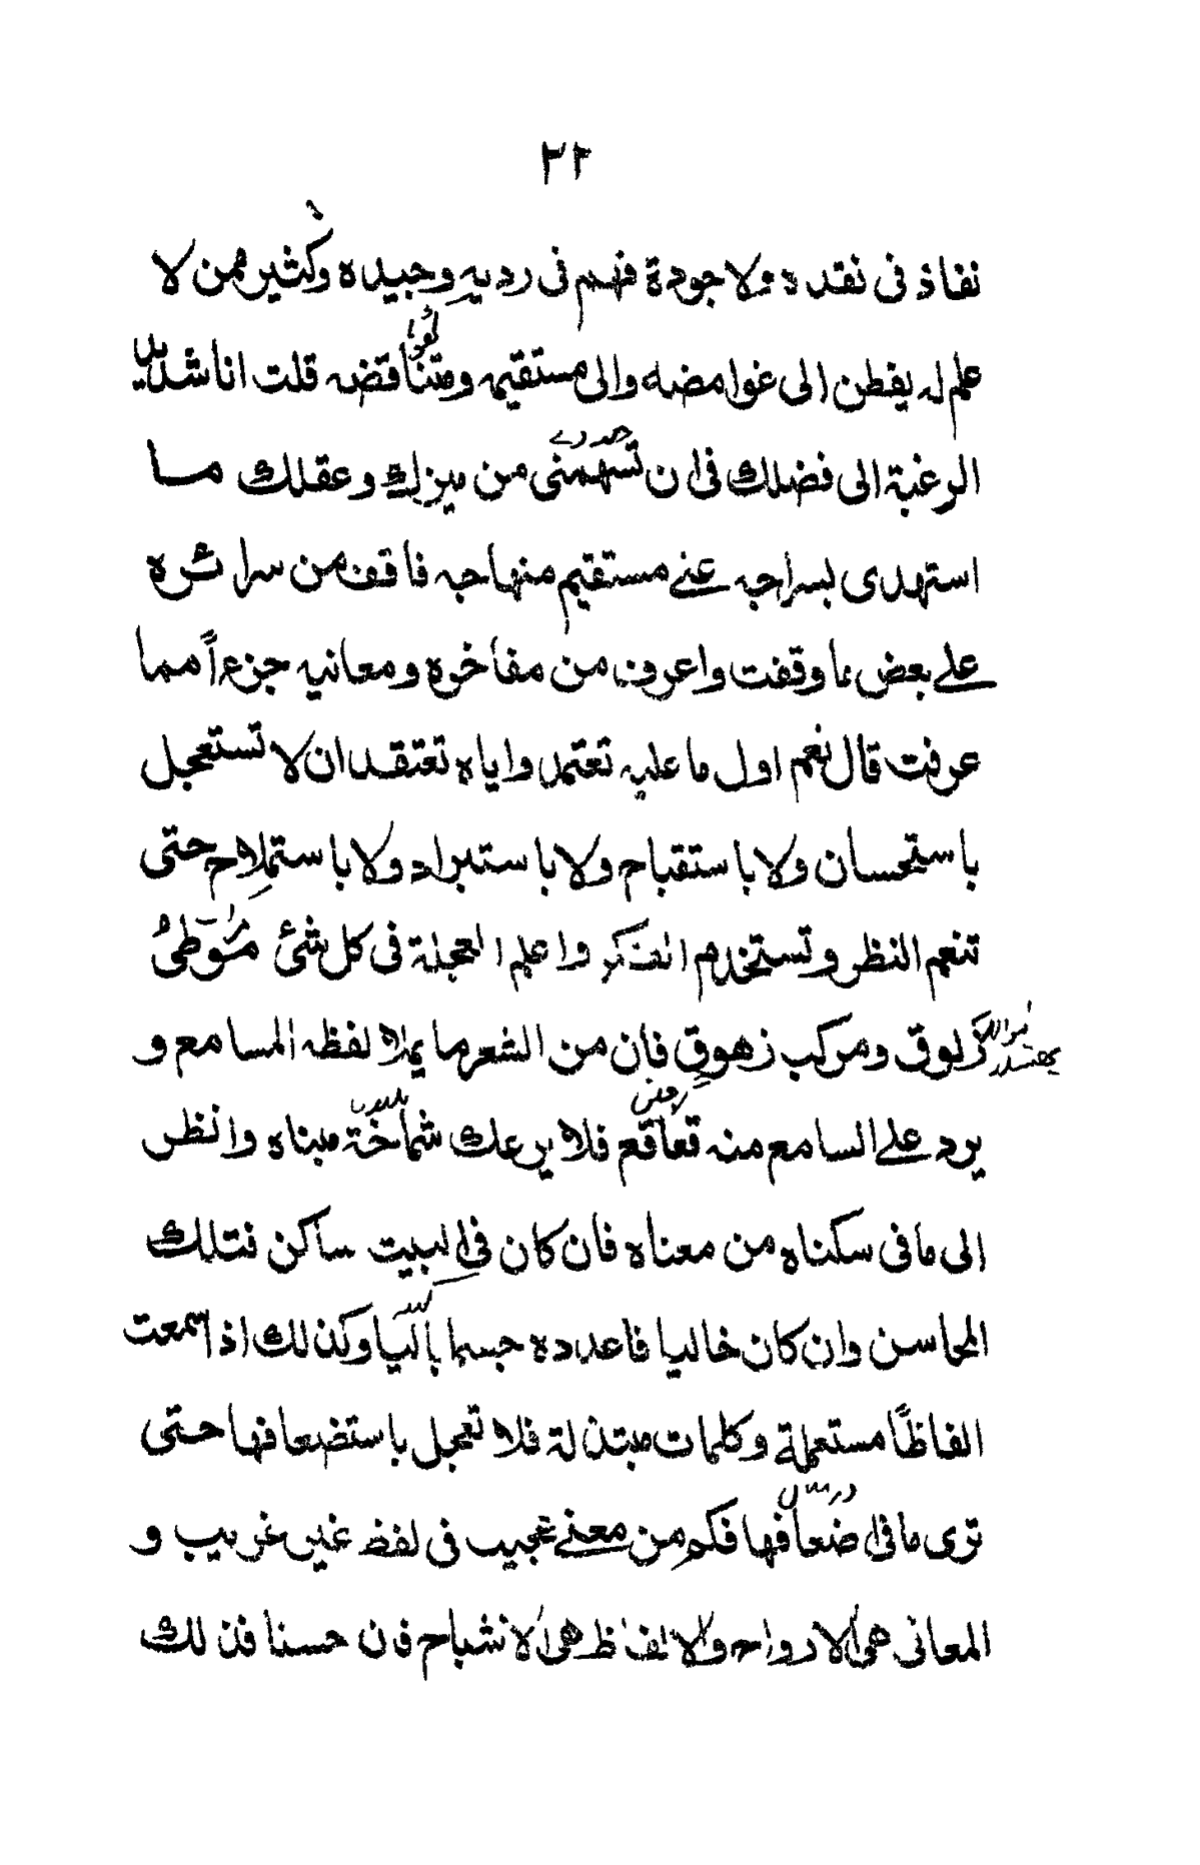 ٢٢
نفاذ فى نقده ولا جودة فهم فى رديه وجيده وكثير ممن لا
علم له يفطن الى غوامضه والى مستقيمه ومتناقضه قلت انا شديد
الرغبة الى فضلك فى ان تسهمنى من ميزك وعقلك ما
استهدى بسراجه عنے مستقيم منهاجه فاقف من سرائره
علے بعض ما وقفت واعرف من مفاخره ومعانيه جزءاً مما
عرفت قال نعم اول ما عليه تعتمد واياه تعتقد ان لا تستعجل
باستحسان ولا باستقباح ولا باستبراد ولا باستملاح حتى
تنعم النظر وتستخدم الفكر واعلم العجلة فى كل شئ مَوطئُ
زلوق ومركب زهوق فان من الشعر ما يملا لفظه المسامع و
يرد علے السامع منه قعاقع فلا يرعك شماخة مبناه وانظر
الى ما فى سكناه من معناه فان كان فى البيت ساكن فتلك
المحاسن وان كان خاليا فاعدده جسما باليا وكذلك اذا سمعت
الفاظًا مستعملة وكلمات مبتذلة فلا تعجل باستضعافها حتى
ترى ما فى اضعافها فكم من معنے عجيب فى لفظ غير غريب و
المعانى هى الارواح والالفاظ هى الاشباح فان حسنا فذلك